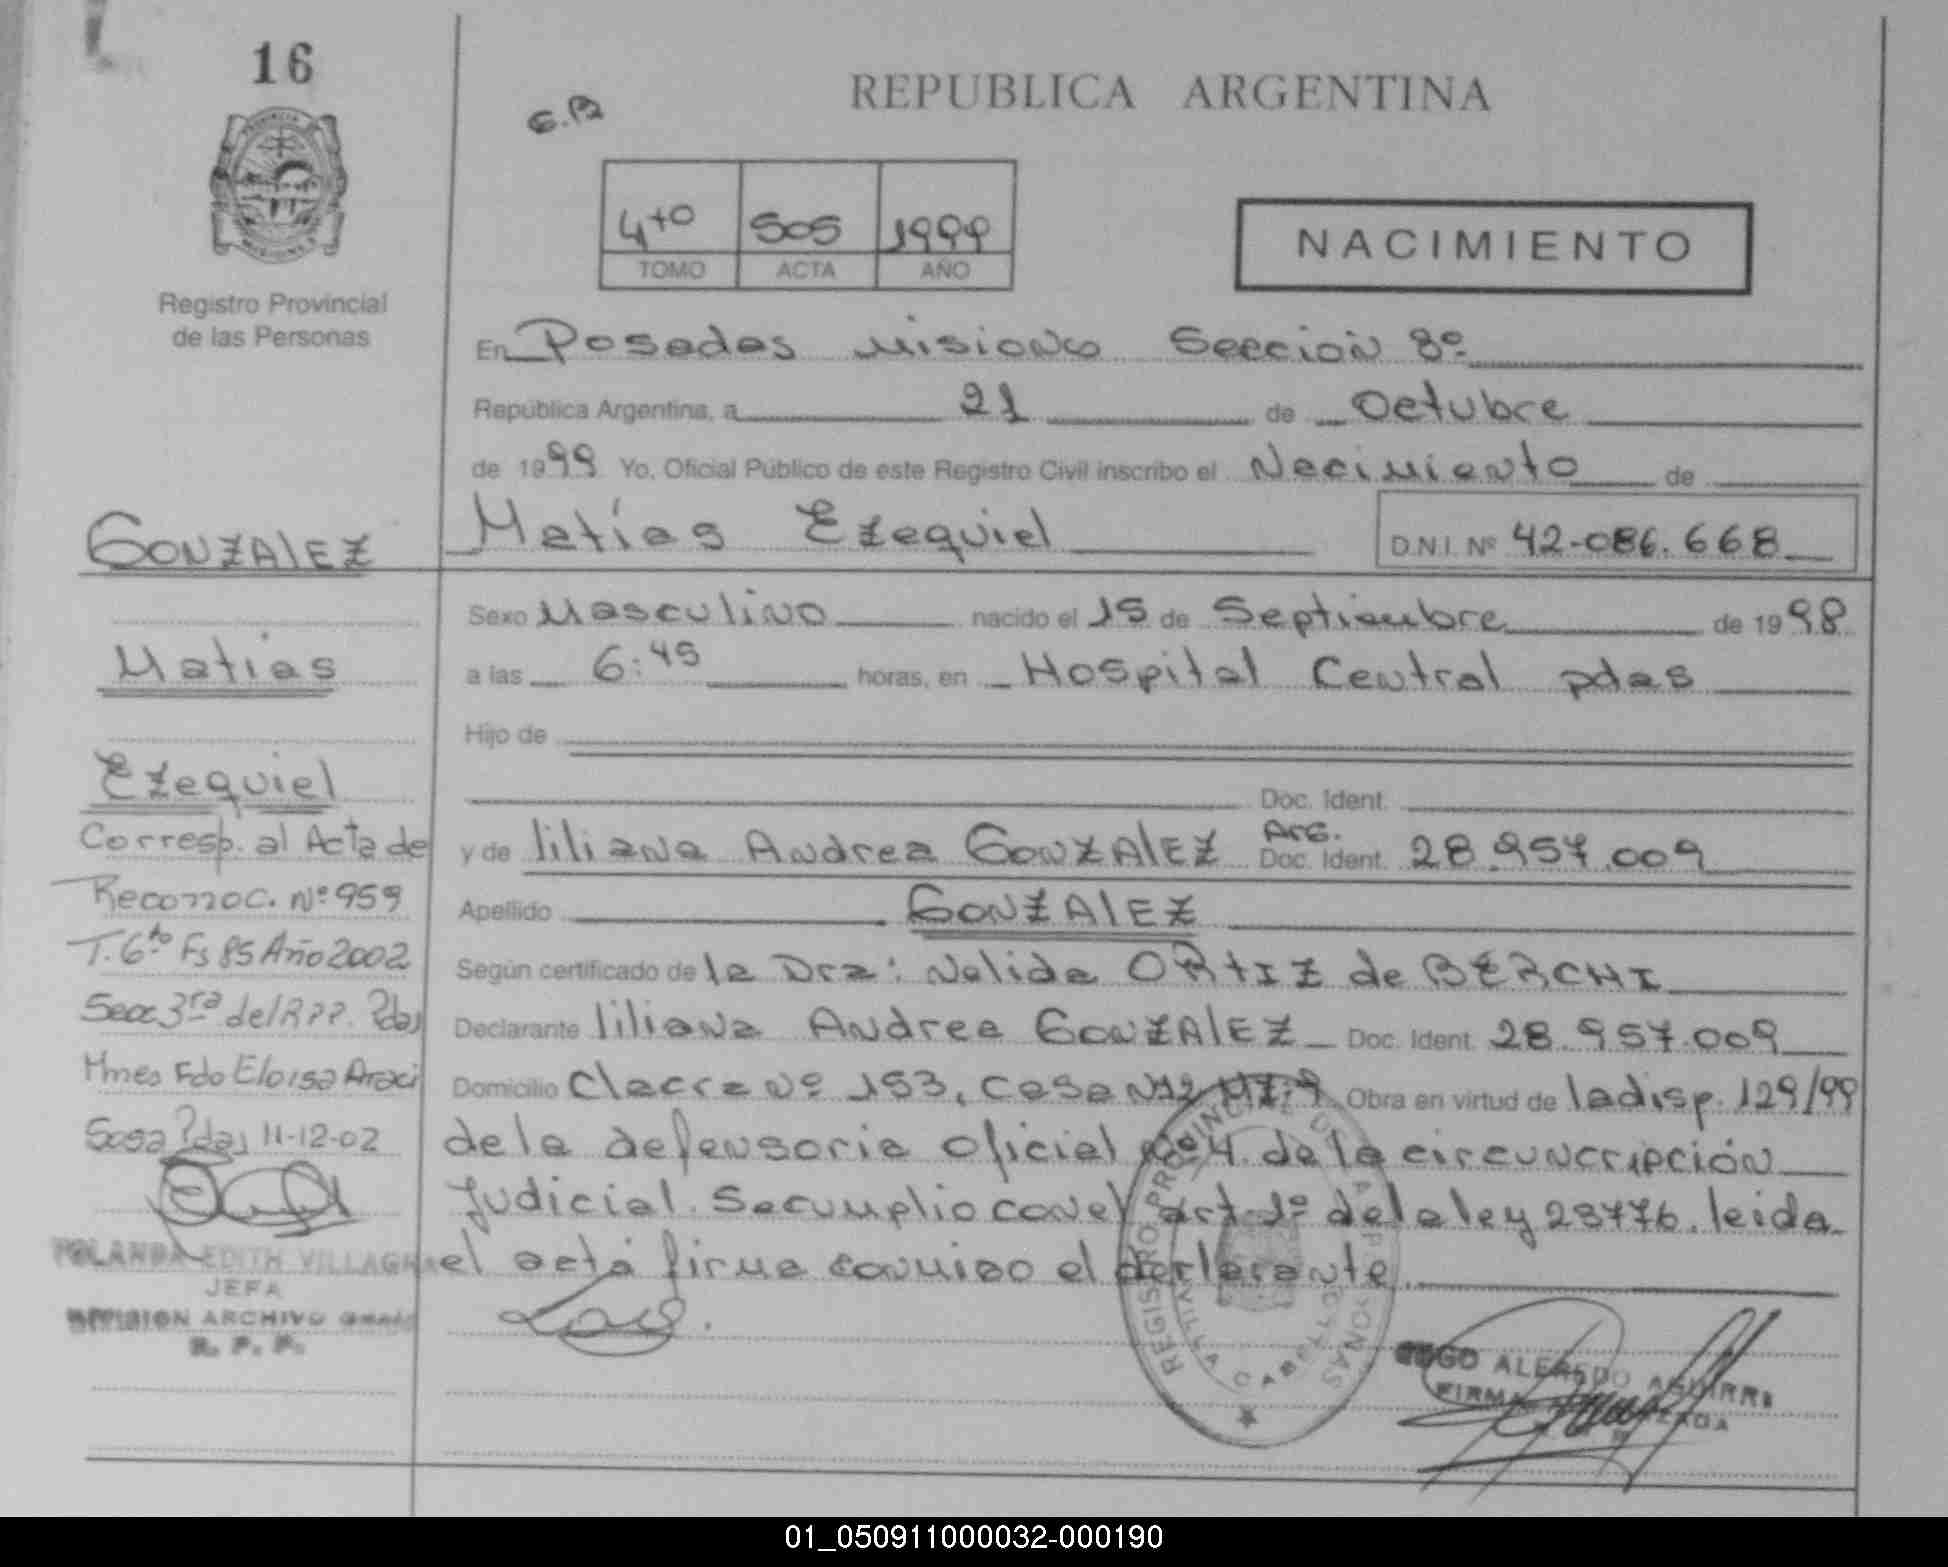 16
REPUBLICA ARGENTINA
4to 505 1999
TOMO ACTA AÑO
NACIMIENTO
Registro Provincial
de las Personas
En Posadas Misiones Sección 8º
República Argentina, a 21 de Octubre
de 1999 Yo, Oficial Público de este Registro Civil inscribo el Nacimiento de
Matías Ezequiel D.N.I. Nº 42-086.668
Sexo Masculino nacido el 15 de Septiembre de 1998
a las 6:45 horas, en Hospital Central pdas
Hijo de
Doc. Ident.
y de liliana Andrea GONZALEZ Arg. Doc. Ident. 28.957.009
Apellido GONZALEZ
Según certificado de la Dra: Nelida ORTIZ de BERCHI
Declarante liliana Andrea GONZALEZ Doc. Ident. 28.957.009
Domicilio Chacra Nº 153, Casa Nº12 Obra en virtud de la disp. 129/99
de la defensoria oficial Nº 4 de la circuncripción
Judicial. Se cumplio con el art. 1º de la ley 23776. leida
el acta firma conmigo el declarante.
GONZALEZ
Matias
Ezequiel
Corresp. al Acta de
Reconoc. Nº 959
T. 6to Fs 85 Año 2002
Secc 3ra del R.P.P. Pdas
Mnes Fdo Eloisa Araci
Sosa Pdas 11-12-02
YOLANDA EDITH VILLAGRA
JEFA
DIVISION ARCHIVO
R. P. P.
REGISTRO PROVINCIAL DE LAS PERSONAS
ALFREDO AGUIRRE
FIRMA
01_050911000032-000190